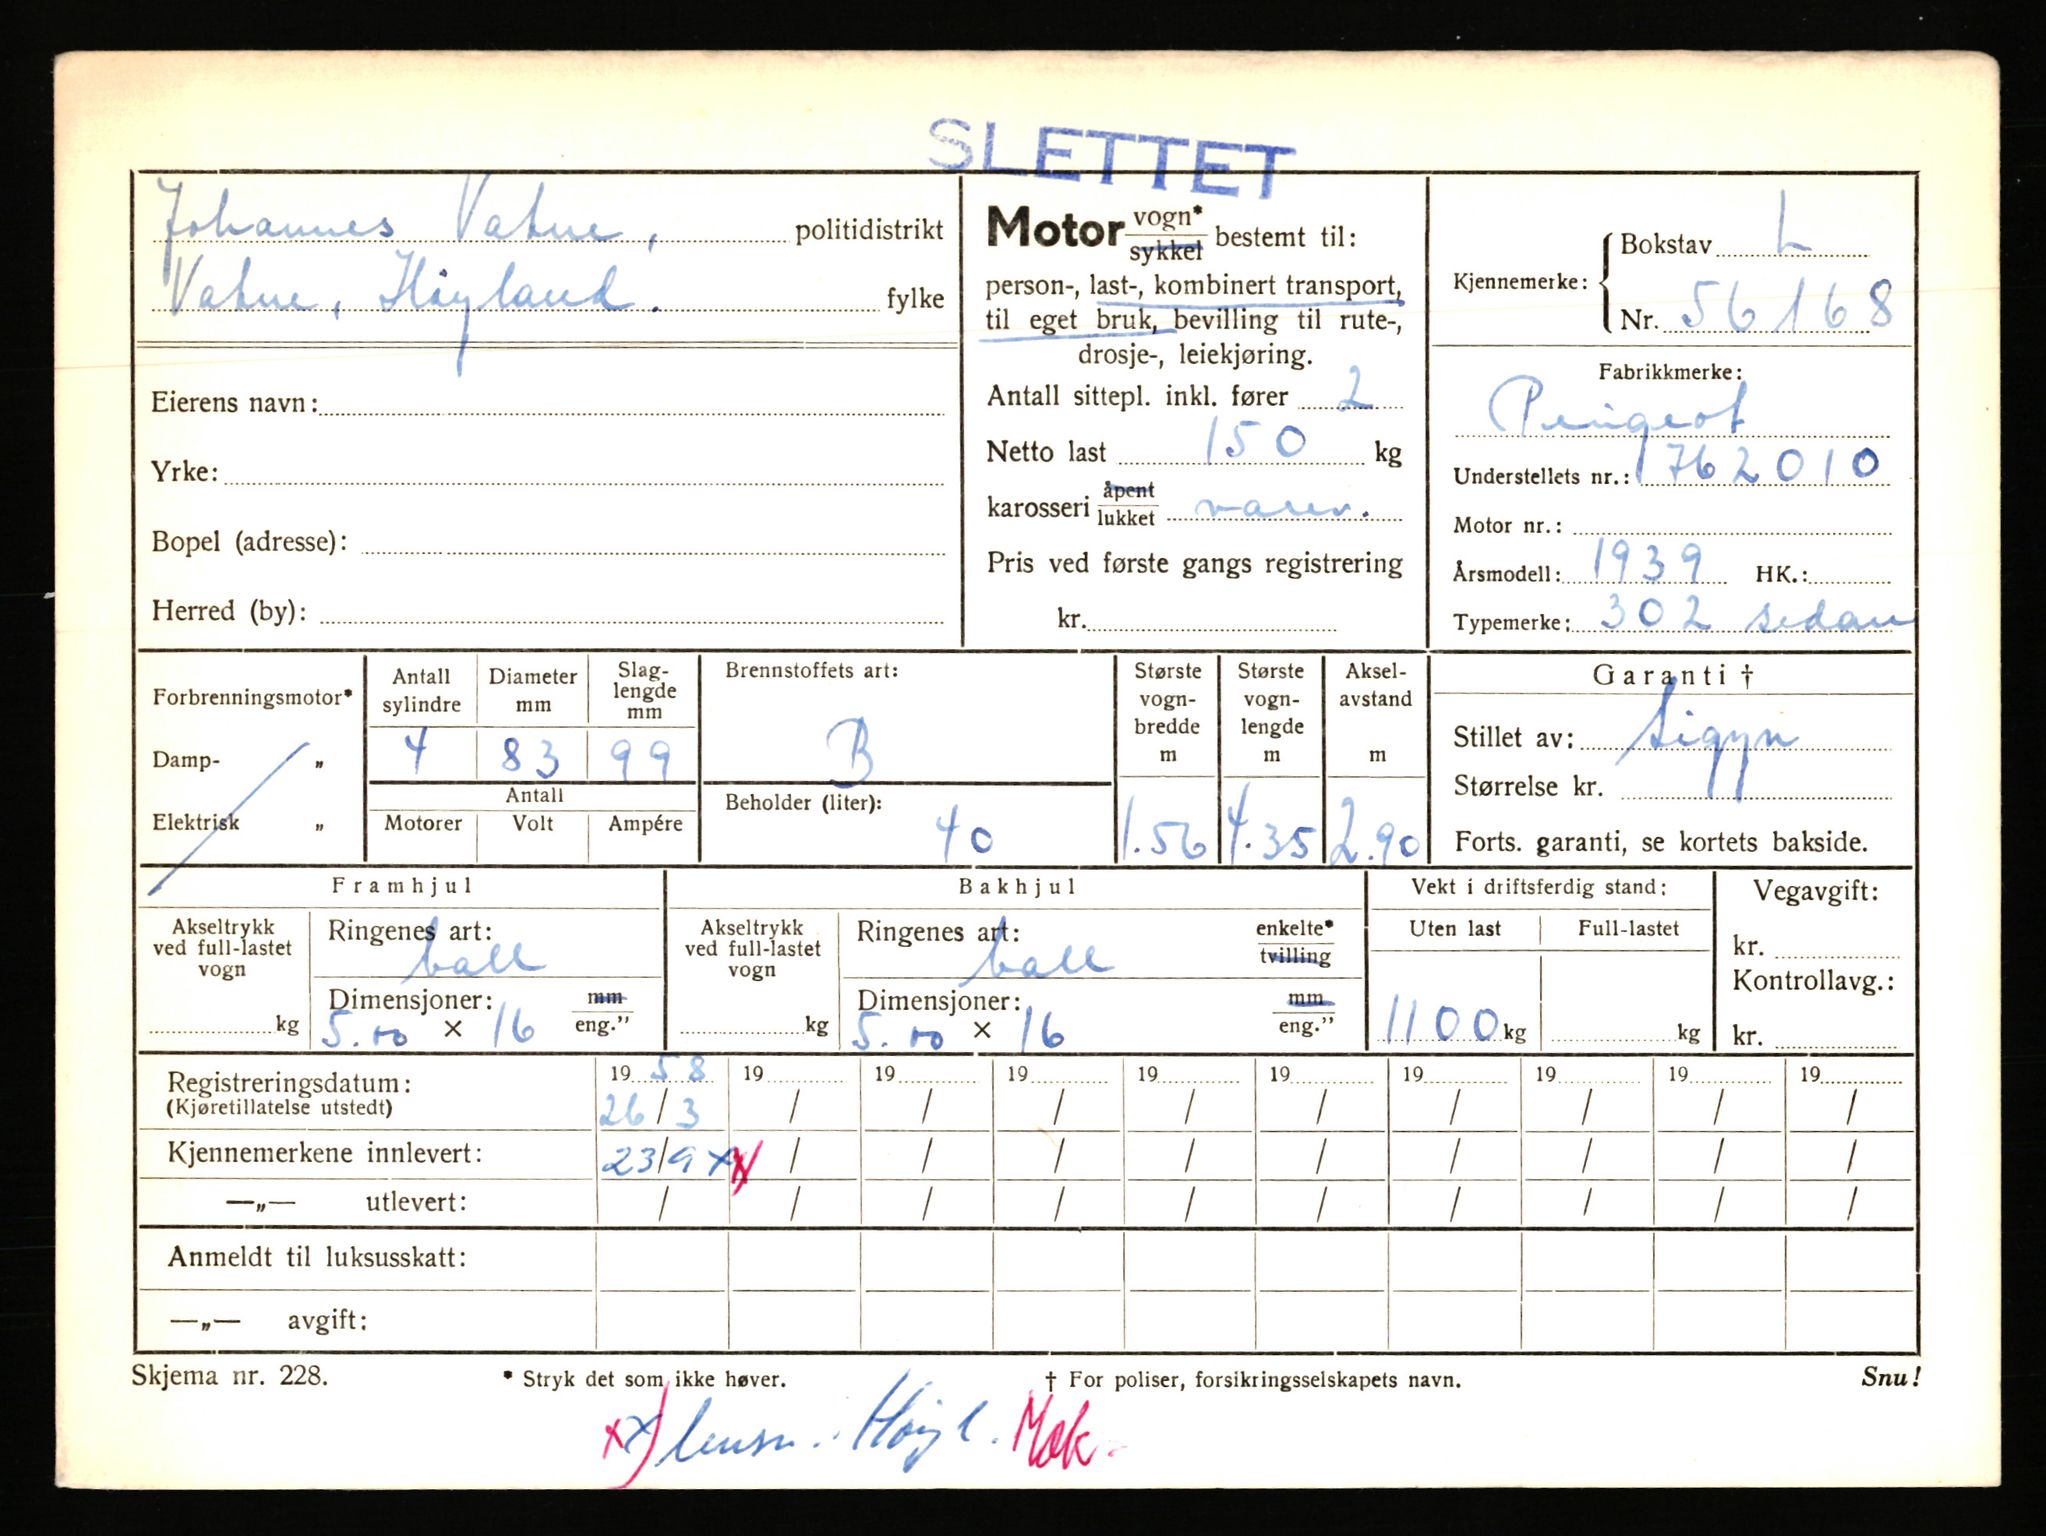 SLETTET
Johannes Vatne, politidistrikt
Vatne, Høyland. fylke
Eierens navn:
Yrke:
Bopel (adresse):
Herred (by):
Motor vogn* sykkel bestemt til:
person-, last-, kombinert transport,
til eget bruk, bevilling til rute-,
drosje-, leiekjøring.
Antall sittepl. inkl. fører 2
Netto last 150 kg
karosseri åpent lukket varev.
Pris ved første gangs registrering
kr.
Kjennemerke: Bokstav L
Nr. 56168
Fabrikkmerke:
Peugeot
Understellets nr.: 762010
Motor nr.:
Årsmodell: 1939 HK.:
Typemerke: 302 sedan
Forbrenningsmotor*
Damp- „
Elektrisk „
Antall sylindre
Diameter mm
Slag-lengde mm
4 83 99
Antall
Motorer Volt Ampére
Brennstoffets art:
B
Beholder (liter):
40
Største vogn-bredde m
1.56
Største vogn-lengde m
4.35
Aksel-avstand m
2.90
Garanti †
Stillet av: Sigyn
Størrelse kr.
Forts. garanti, se kortets bakside.
Framhjul
Akseltrykk ved full-lastet vogn
kg
Ringenes art:
ball
Dimensjoner: mm eng.”
5.00 × 16
Bakhjul
Akseltrykk ved full-lastet vogn
kg
Ringenes art: enkelte* tvilling
ball
Dimensjoner: mm eng.”
5.00 × 16
Vekt i driftsferdig stand:
Uten last Full-lastet
1100 kg kg
Vegavgift:
kr.
Kontrollavg.:
kr.
Registreringsdatum: 1958 19 19 19 19 19 19 19 19 19
(Kjøretillatelse utstedt) 26/3 / / / / / / / / /
Kjennemerkene innlevert: 23/9 xx / / / / / / / / /
—„— utlevert: / / / / / / / / / /
Anmeldt til luksusskatt:
—„— avgift:
Skjema nr. 228. * Stryk det som ikke høver. † For poliser, forsikringsselskapets navn. Snu!
xx) lensm. i Høyl.